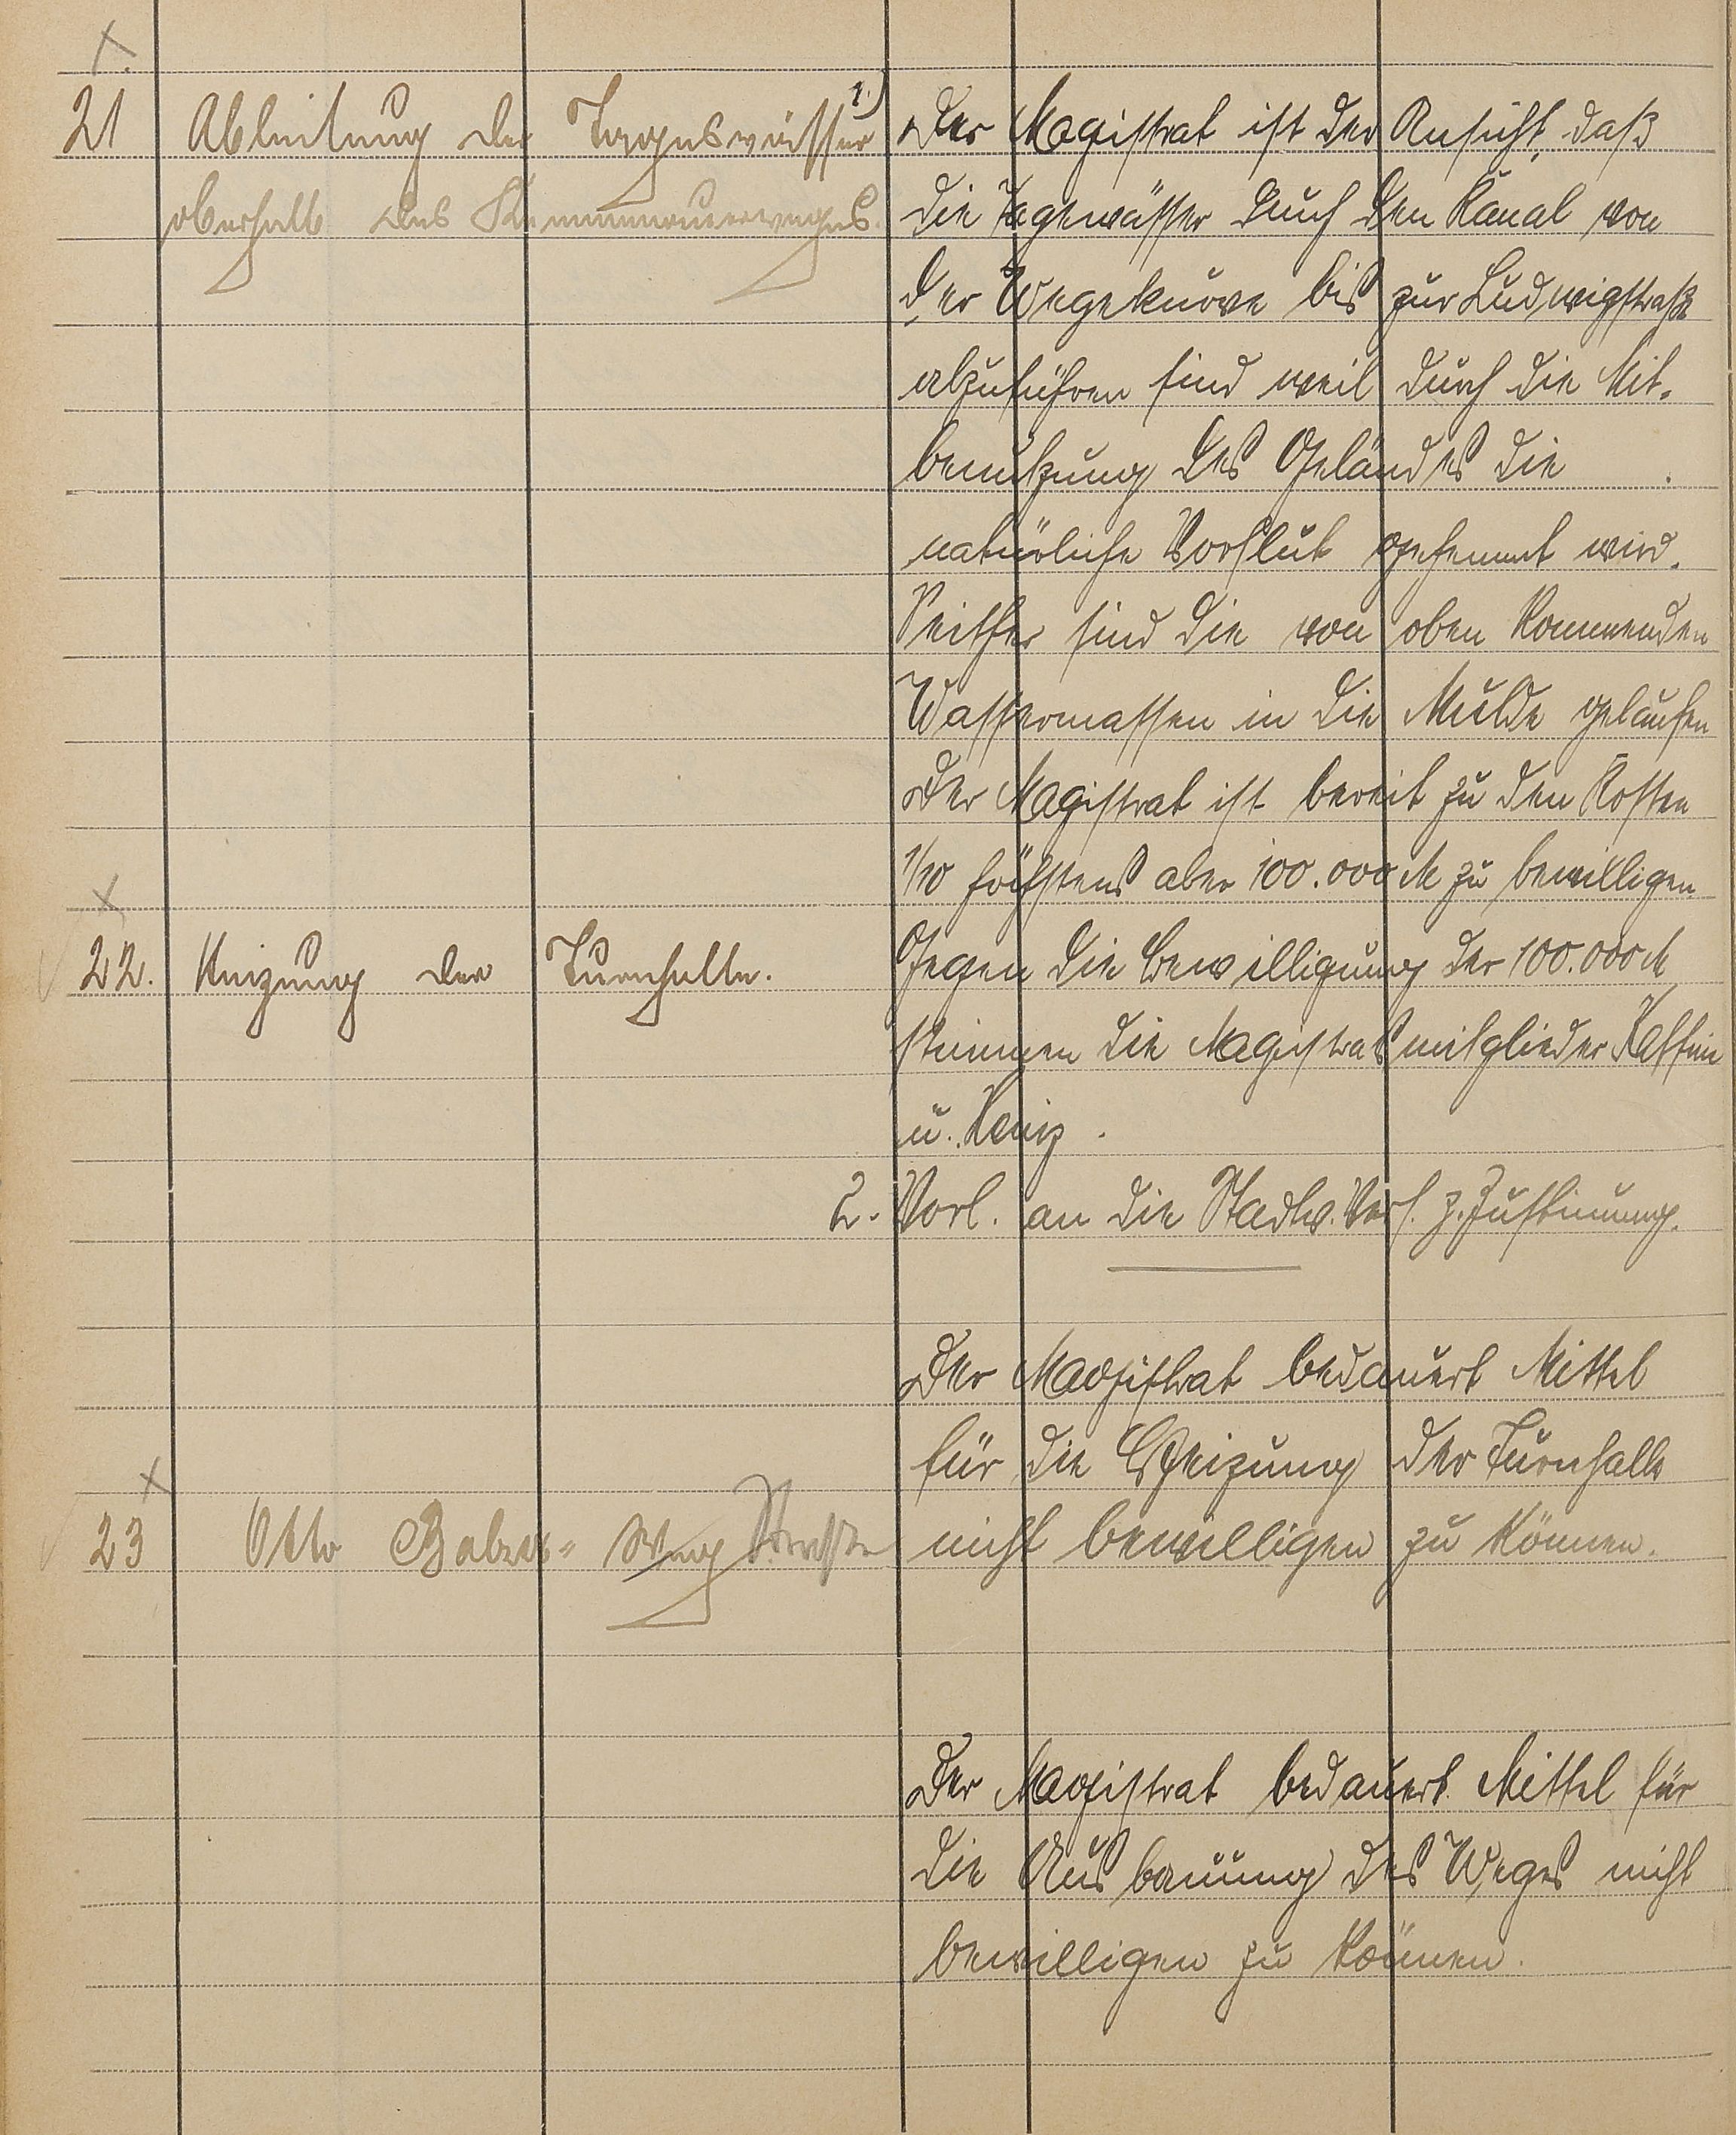 21 Ableitung der Tageswässer
oberhalb des
1.) Der Magistrat ist der Ansicht, daß
die Tagewässer durch den Kanal von
der Wegekurve bis zur Ludwigstraße
abzuführen sind weil durch die Mit-
benutzung des Geländes die
natürliche Vorflut gehemmt wird.
Seither sind die von oben kommenden
Wassermassen in die Mulde gelaufen
Der Magistrat ist bereit zu den Kosten
1/10 höchstens aber 100.000 M zu bewilligen.
Gegen die Bewilligung der 100.000 M
stimmen die Magistratsmitglieder
u.
2. Vorl. an die Stadtv. Vers. z. Zustimmung.
22. Heizung der Turnhalle.
Der Magistrat bedauert Mittel
für die Heizung der Turnhalle
nicht bewilligen zu können.
23 Otto Straße
Der Magistrat bedauert Mittel für
die Ausbauung des Weges nicht
bewilligen zu können.